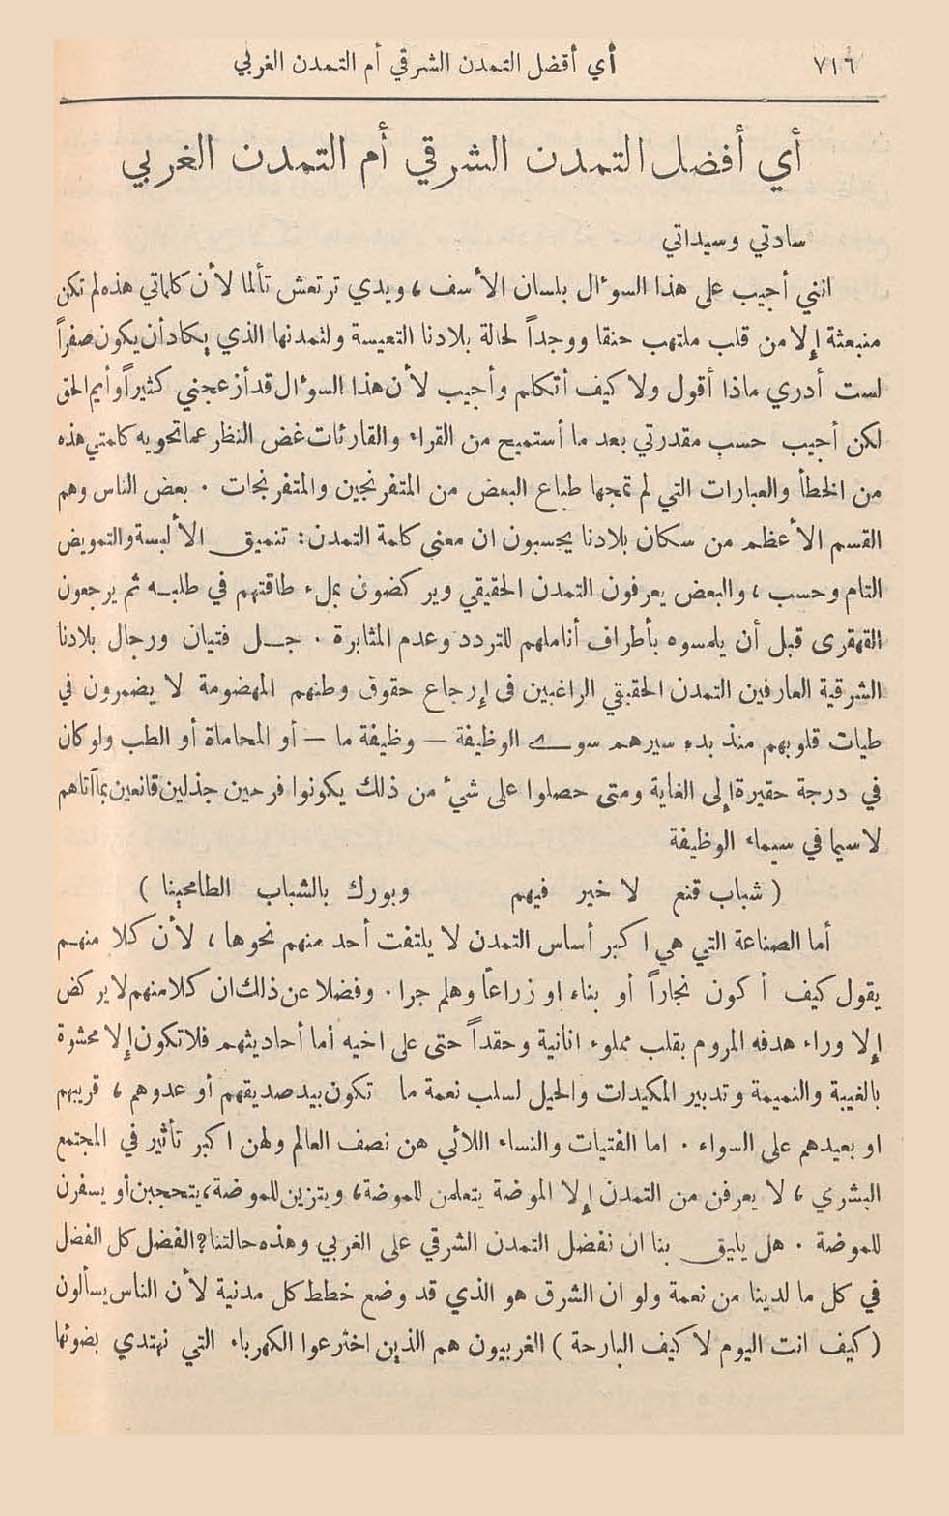 ٧١٦ أي أفضل التمدن الشرقي أم التمدن الغربي
أي أفضل التمدن الشرقي أم التمدن الغربي
سادتي وسيداتي
انني أجيب على هذا السوءال بلسان الأسف ، ويدي ترتعش تألما لأن كلماتي هذه لم تكن
منبعثة إلا من قلب ملتهب حنقا ووجداً لحالة بلادنا التعيسة ولتمدنها الذي يكاد أن يكون صفراً
لست أدري ماذا أقول ولا كيف أتكلم وأجيب لأن هذا السوءال قد أزعجني كثيراً وأيم الحق
لكن أجيب حسب مقدرتي بعد ما أستميح من القراء والقارئات غض النظر عما تحويه كلمتي هذه
من الخطأ والعبارات التي لم تمجها طباع البعض من المتفرنجين والمتفرنجات . بعض الناس وهم
القسم الأعظم من سكان بلادنا يحسبون ان معنى كلمة التمدن : تنميق الألبسة والتمويض
التام وحسب ، والبعض يعرفون التمدن الحقيقي ويركضون بملء طاقتهم في طلبه ثم يرجعون
القهقرى قبل أن يلمسوه بأطراف أناملهم للتردد وعدم المثابرة . جل فتيان ورجال بلادنا
الشرقية العارفين التمدن الحقيقي الراغبين في إرجاع حقوق وطنهم المهضومة لا يضمرون في
طيات قلوبهم منذ بدء سيرهم سوى الوظيفة – وظيفة ما – أو المحاماة أو الطب ولو كان
في درجة حقيرة إلى الغاية ومتى حصلوا على شيء من ذلك يكونوا فرحين جذلين قانعين بما آتاهم
لا سيما في سيماء الوظيفة
( شباب قنع لا خير فيهم وبورك بالشباب الطامحينا )
أما الصناعة التي هي اكبر أساس التمدن لا يلتفت أحد منهم نحوها ، لأن كلا منهم
يقول كيف أكون نجاراً أو بناء او زراعاً وهلم جرا . وفضلا عن ذلك ان كلا منهم لا يركض
إلا وراء هدفه المروم بقلب مملوء انانية وحقداً حتى على اخيه أما أحاديثهم فلا تكون إلا محشوة
بالغيبة والنميمة وتدبير المكيدات والحيل لسلب نعمة ما تكون بيد صديقهم أو عدوهم ، قريبهم
او بعيدهم على السواء . اما الفتيات والنساء اللائي هن نصف العالم ولهن اكبر تأثير في المجتمع
البشري ، لا يعرفن من التمدن إلا الموضة يتعلمن للموضة ، ويتزين للموضة ، يتحجبن أو يسفرن
للموضة . هل يليق بنا ان نفضل التمدن الشرقي على الغربي وهذه حالتنا ? الفضل كل الفضل
في كل ما لدينا من نعمة ولو ان الشرق هو الذي قد وضع خطط كل مدنية لأن الناس يسألون
( كيف انت اليوم لا كيف البارحة ) الغربيون هم الذين اخترعوا الكهرباء التي نهتدي بضوئها